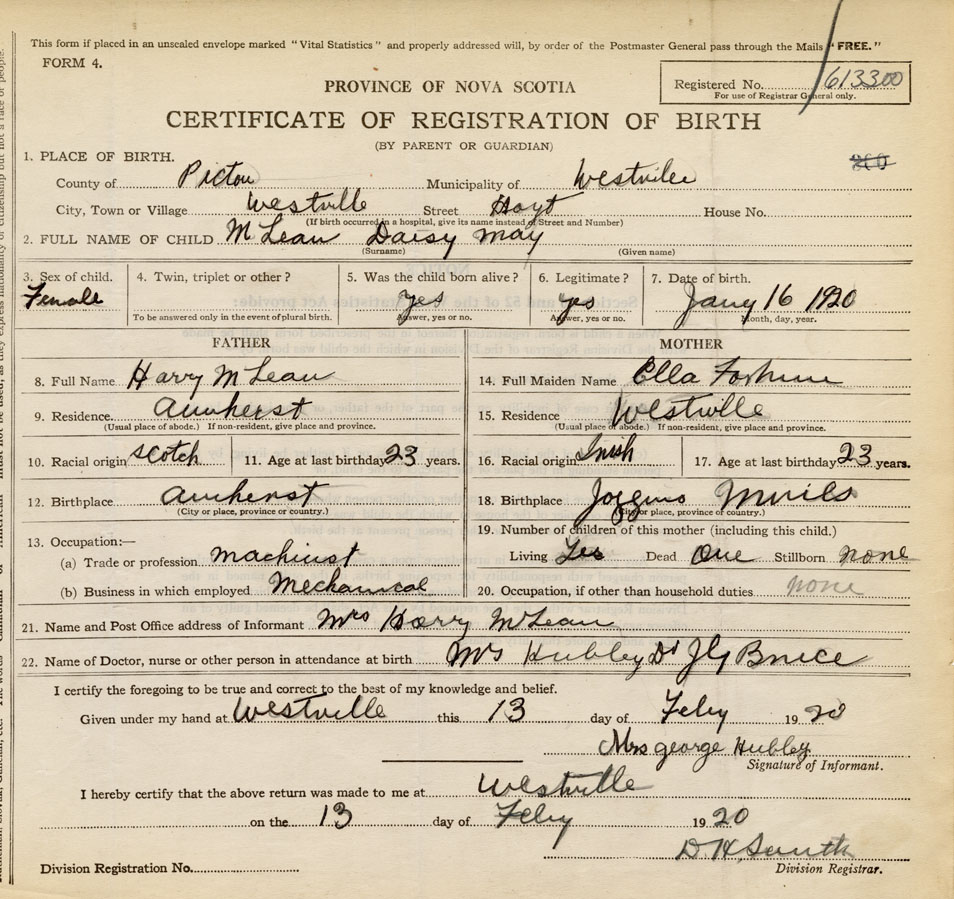 This form if placed in an unsealed envelope marked "Vital Statistics" and properly addressed will, by order of the Postmaster General pass through the Mails "FREE."
FORM 4.
Registered No. 613300
For use of Registrar General only.
PROVINCE OF NOVA SCOTIA
CERTIFICATE OF REGISTRATION OF BIRTH
(BY PARENT OR GUARDIAN)
1. PLACE OF BIRTH.
County of Pictou Municipality of Westville
City, Town or Village Westville Street Hoyt House No.
(If birth occurred in a hospital, give its name instead of Street and Number)
2. FULL NAME OF CHILD McLean Daisy may
(Surname) (Given name)
3. Sex of child. 4. Twin, triplet or other? 5. Was the child born alive? 6. Legitimate? 7. Date of birth.
Female yes yes Jany 16 1920
To be answered only in the event of plural birth. Answer, yes or no. Answer, yes or no. Month, day, year.
FATHER MOTHER
8. Full Name Harry McLean 14. Full Maiden Name Ella
9. Residence. Amherst 15. Residence Westville
(Usual place of abode.) If non-resident, give place and province. (Usual place of abode.) If non-resident, give place and province.
10. Racial origin scotch 11. Age at last birthday 23 years. 16. Racial origin Irish 17. Age at last birthday 23 years.
12. Birthplace Amherst 18. Birthplace Joggins
(City or place, province or country.) (City or place, province or country.)
19. Number of children of this mother (including this child.)
13. Occupation:—
(a) Trade or profession machinist Living Dead One Stillborn none
(b) Business in which employed Mechanical 20. Occupation, if other than household duties none
21. Name and Post Office address of Informant Mrs Harry McLean
22. Name of Doctor, nurse or other person in attendance at birth Mrs Hubley Dr Bruce
I certify the foregoing to be true and correct to the best of my knowledge and belief.
Given under my hand at Westville this 13 day of Feby 1920
Mrs george Hubley
Signature of Informant.
I hereby certify that the above return was made to me at Westville
on the 13 day of Feby 1920
D H Smith
Division Registration No. Division Registrar.